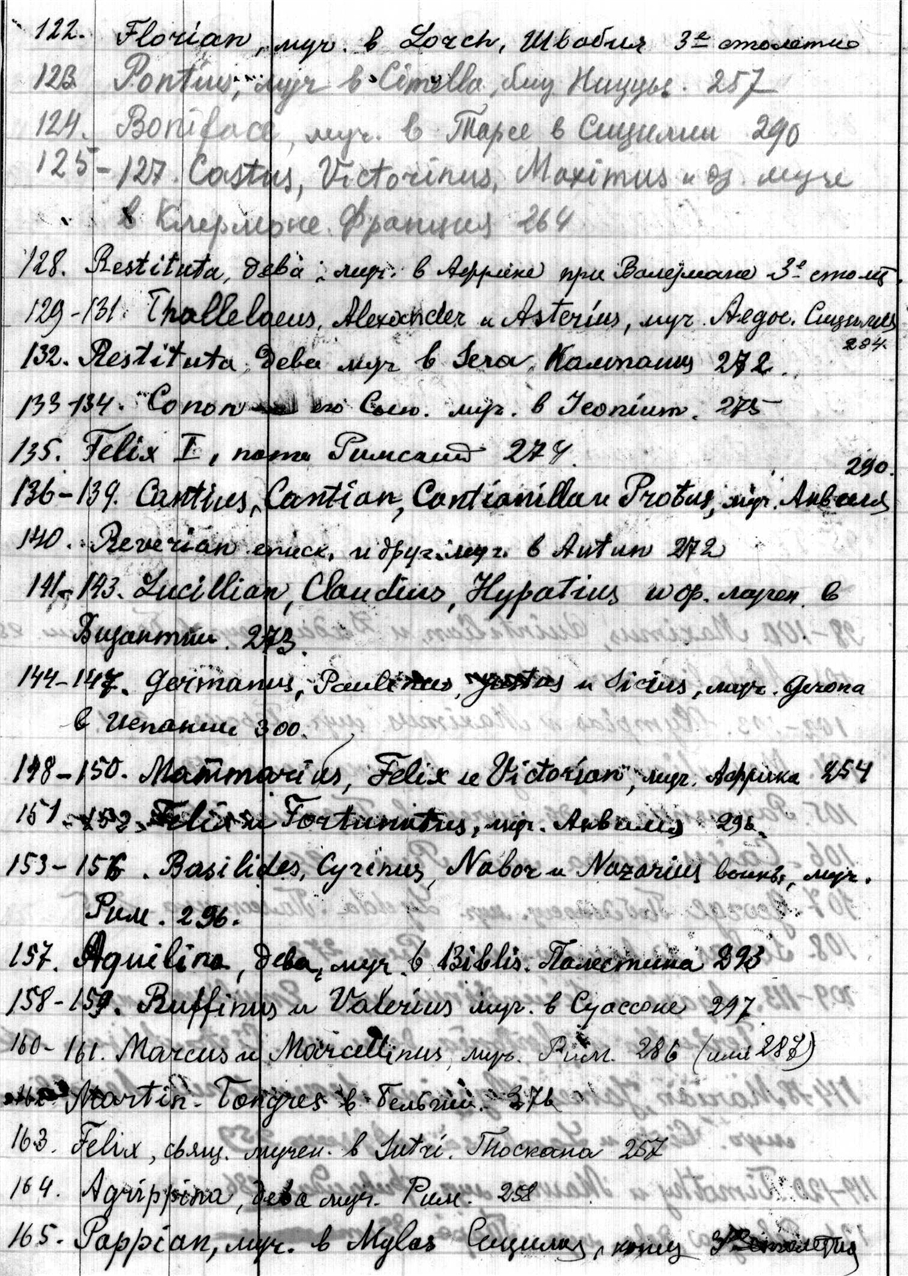 122. Florian, муч. в Lorch, Швабия 3е столетие
123 Pontius, муч в Cimella, близ Ниццы. 257
124. Boniface, муч. в Тарсе в Сицилии 290
125-127. Castus, Victorinus, Maximus и др. муче
в Клермоне. Франция 264
128. Restituta, дева, муч. в Африке при Валериане 3е столет.
129-131. Thallelaeus, Alexander и Asterius, муч. Сицилия
284
132. Restituta дева муч в Sera, Кампания 272.
133-134. Conon его сын. муч. в Iconium. 275
135. Felix I, папа Римский 274
290.
136-139. Cantius, Cantian, Cantianilla и Protus, муч. Аквилея
140. Reverian еписк. и друг. муч. в Autun 272
141-143. Lucillian, Claudius, Hypatius и др. мучен. в
Византии. 273.
144-147. Germanus, Paulinus, Justus и Sicius, муч. Gerona
в Испании 300.
148-150. Mammarius, Felix и Victorian, муч. Африка 254
151-152. Felix и Fortunatus, муч. Аквилея 296.
153-156. Basilides, Cyrinus, Nabor и Nazarius воины, муч.
Рим. 296.
157. Aquilina, дева, муч. в Biblis. Палестина 293
158-159. Ruffinus и Valerius муч. в Суассоне 297
160-161. Marcus и Marcellinus, муч. Рим. 286 (или 287)
162. Martin. Tongres в Бельгии. 276
163. Felix, свящ. мучен. в Sutri. Тоскана 257
164. Agrippina, дева муч. Рим. 258
165. Pappian, муч. в Mylas Сицилия, конец 3го столетия